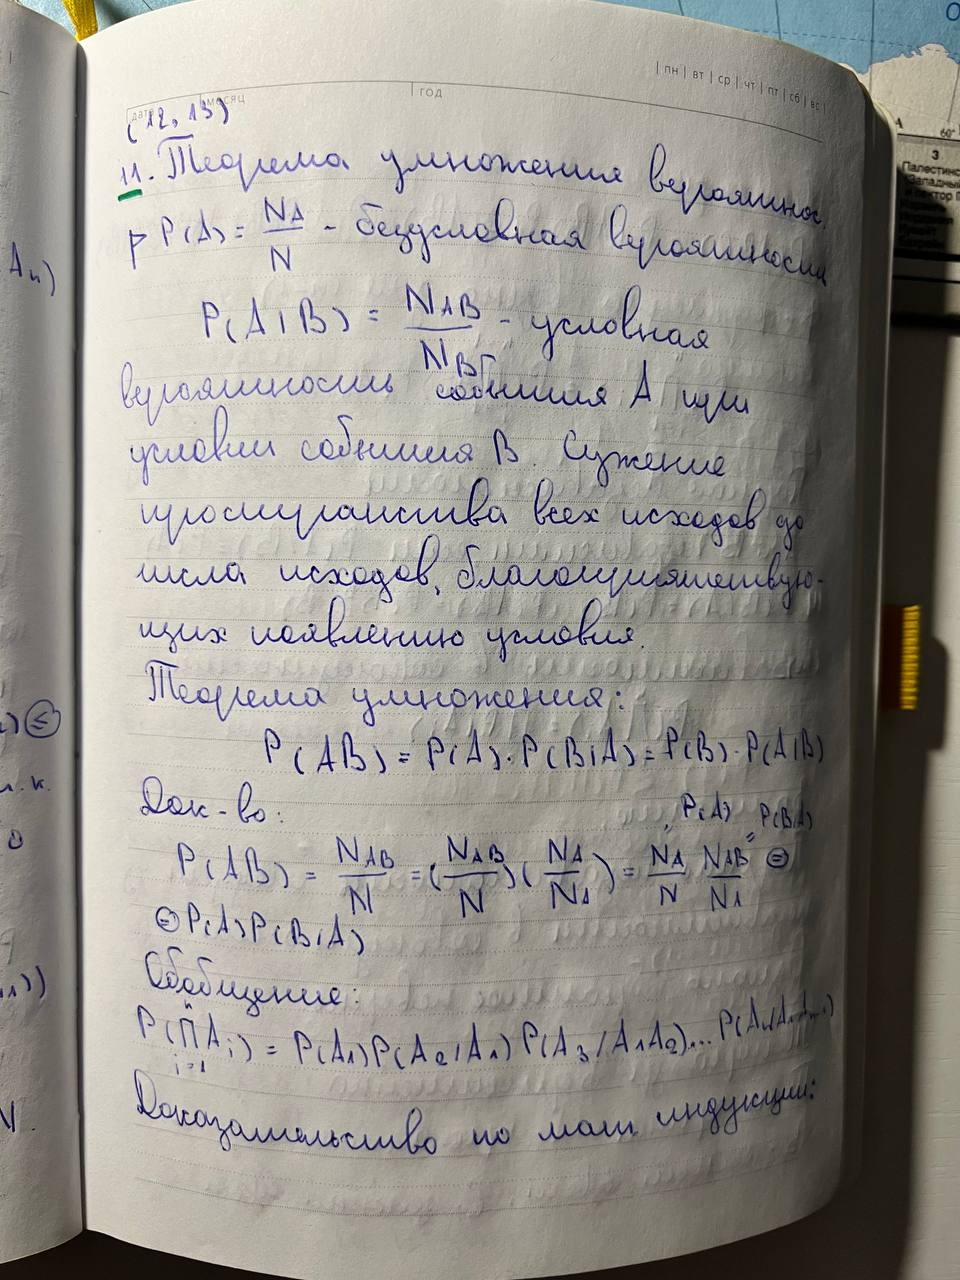 | пн | вт | ср | чт | пт | сб | вс |
дата месяц | год
(12, 13)
11. Теорема умножения вероятнос.
P(A) = N_A / N - безусловная вероятность
P(A|B) = N_AB / N_B - условная
вероятность события A при
условии события B. Сужение
пространства всех исходов до
числа исходов, благоприятствую-
щих появлению условия.
Теорема умножения:
P(AB) = P(A)·P(B|A) = P(B)·P(A|B)
Док-во:
P(A) P(B/A)
P(AB) = N_AB / N = (N_AB / N)(N_A / N_A) = N_A / N N_AB / N_A ⊜
⊜ P(A)P(B/A)
Обобщение:
P(∏ A_i) = P(A_1)P(A_2/A_1)P(A_3/A_1A_2)...
n
i=1
Доказательство по мат индукции:
A_n)
т.к.
60°
3
Палестинс
Западный
и сектор Г